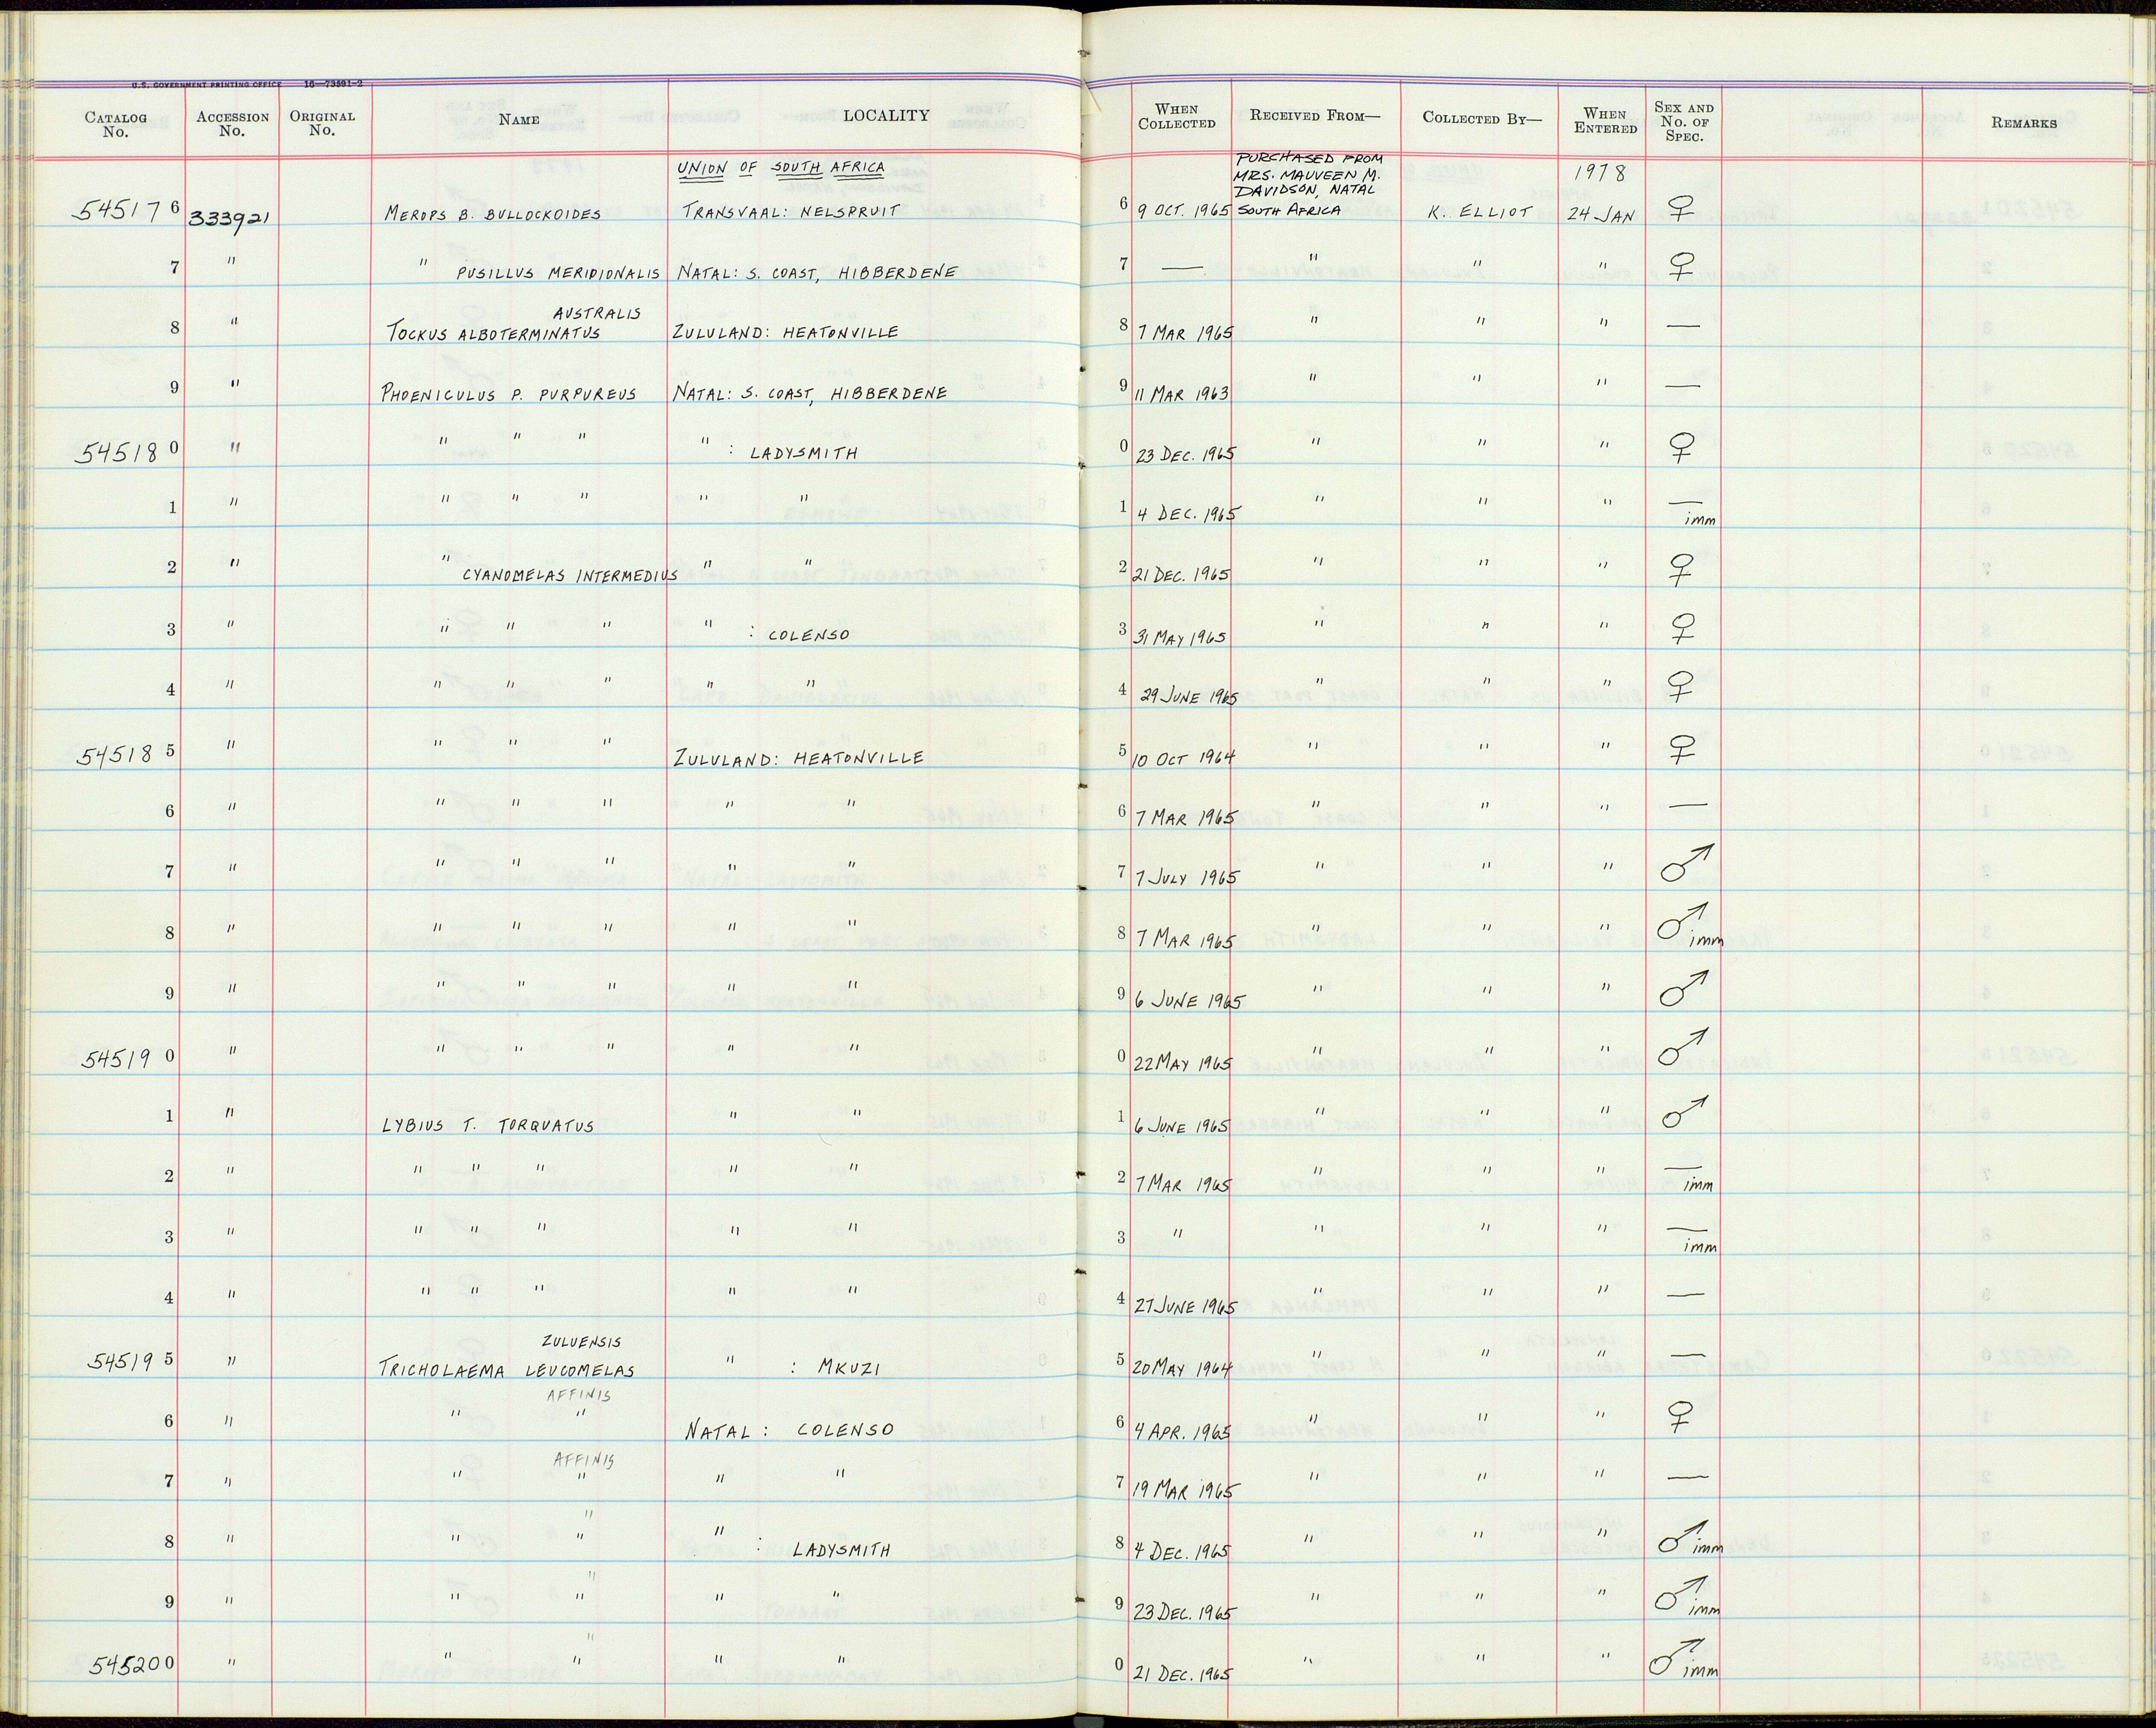 U.S. GOVERNMENT PRINTING OFFICE 16—73591-2
CATALOG No. ACCESSION No. ORIGINAL No. NAME LOCALITY WHEN COLLECTED RECEIVED FROM— COLLECTED BY— WHEN ENTERED SEX AND No. OF SPEC. REMARKS
UNION OF SOUTH AFRICA PURCHASED FROM MRS. MAUVEEN M. DAVIDSON, NATAL 1978
545176 333921 MEROPS B. BULLOCKOIDES TRANSVAAL: NELSPRUIT 6 9 OCT. 1965 SOUTH AFRICA K. ELLIOT 24 JAN ♀
7 " " PUSILLUS MERIDIONALIS NATAL: S. COAST, HIBBERDENE 7 — " " " ♀
AUSTRALIS
8 " TOCKUS ALBOTERMINATUS ZULULAND: HEATONVILLE 8 7 MAR 1965 " " " —
9 " PHOENICULUS P. PURPUREUS NATAL: S. COAST, HIBBERDENE 9 11 MAR 1963 " " " —
545180 " " " " " : LADYSMITH 0 23 DEC. 1965 " " " ♀
1 " " " " " " 1 4 DEC. 1965 " " " — imm
2 " " CYANOMELAS INTERMEDIUS " " 2 21 DEC. 1965 " " " ♀
3 " " " " " : COLENSO 3 31 MAY 1965 " " " ♀
4 " " " " " " 4 29 JUNE 1965 " " " ♀
545185 " " " " ZULULAND: HEATONVILLE 5 10 OCT 1964 " " " ♀
6 " " " " " " 6 7 MAR 1965 " " " —
7 " " " " " " 7 7 JULY 1965 " " " ♂
8 " " " " " " 8 7 MAR 1965 " " " ♂ imm
9 " " " " " " 9 6 JUNE 1965 " " " ♂
545190 " " " " " " 0 22 MAY 1965 " " " ♂
1 " LYBIUS T. TORQUATUS " " 1 6 JUNE 1965 " " " ♂
2 " " " " " " 2 7 MAR 1965 " " " — imm
3 " " " " " " 3 " " " " — imm
4 " " " " " " 4 27 JUNE 1965 " " " —
ZULUENSIS
545195 " TRICHOLAEMA LEUCOMELAS " : MKUZI 5 20 MAY 1964 " " " —
AFFINIS
6 " " " NATAL : COLENSO 6 4 APR. 1965 " " " ♀
AFFINIS
7 " " " " " 7 19 MAR 1965 " " " —
"
8 " " " " : LADYSMITH 8 4 DEC. 1965 " " " ♂ imm
"
9 " " " " " 9 23 DEC. 1965 " " " ♂ imm
"
545200 " " " " " 0 21 DEC. 1965 " " " ♂ imm